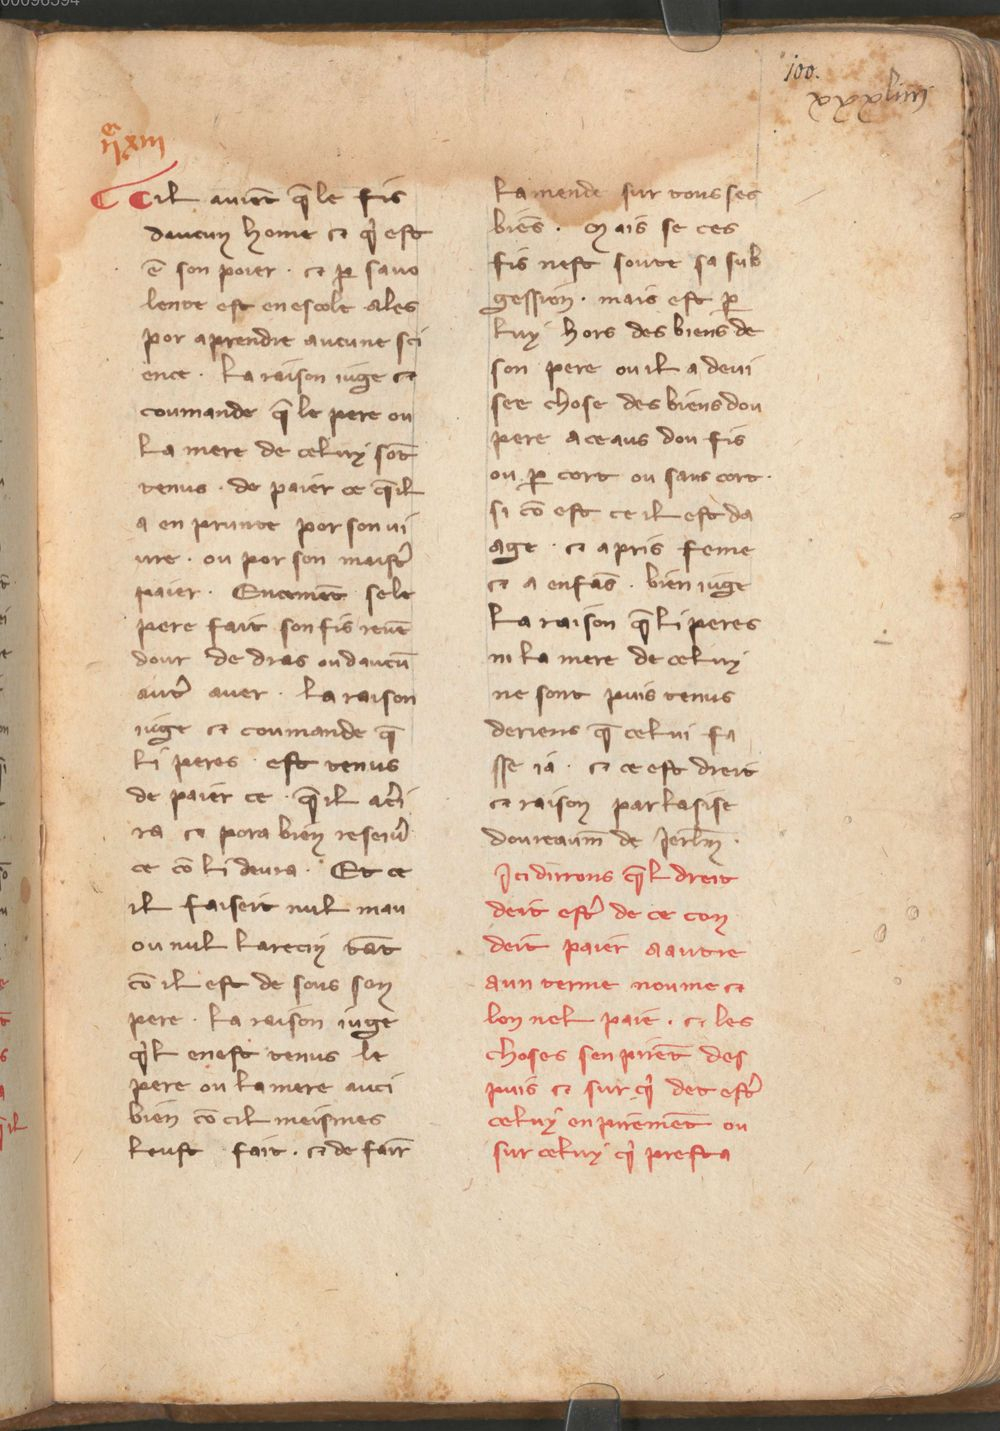 00096594
100.
xxxliiij
ij xiij
Cil auiēt q̄ le fis
daucun home ⁊ qͥ est
ē son poier · ⁊ ꝑ sa vo
lente est en escole ales
por aprendre aucune sci
ence · La raison iuge ⁊
coumande q̄ le pere ou
la mere de celuy sōt
tenus · de paier ce q̄ il
a en prunte por son ui
ure · ou por son maist͛
paier · Encemēt se le
pere fait son fis reuē
dour de dras ou daucū
aut͛ auer · La raison
iuge ⁊ coumande q̄
li peres est tenus
de paier ce · q̄ il ac͛i
ra ⁊ pora bien reseiu͛
ce cō li deura · Et ce
il faiseit nul mau
ou nul larecin tāt
cō il est de sous son
pere · La raison iuge
qͥl en est tenus le
pere ou la mere auci
bien cō cil meismes
leust fait · ⁊ de fair̄
lamende sur tous ses
biēs · Mais se ces
fis nest soute sa sub
gession · mais est ꝑ
luy hors des biens de
son pere ou il a deui
see chose des biens dou
pere a ceaus dou fis
ou ꝑ cort ou sans cort ·
si cō est ce il est da
age · ⁊ a pris feme
⁊ a enfās · bien iuge
la raison q̄ li peres
ni la mere de celuy
ne sont puis tenus
de riens q̄ celui fa
sse ia · ⁊ ce est dreit
⁊ raison par lasise
dou reaum̄ de Jerl̄m ·
Ici dirrons q̄l dreit
deit est͛ de ce con
deit paier a autre
a un terme noume ⁊
lon nel paie · ⁊ les
choses sen pirēt des
puis ⁊ sur qͥ det est͛
celuy en piremēt ou
sur celuy qͥ presta